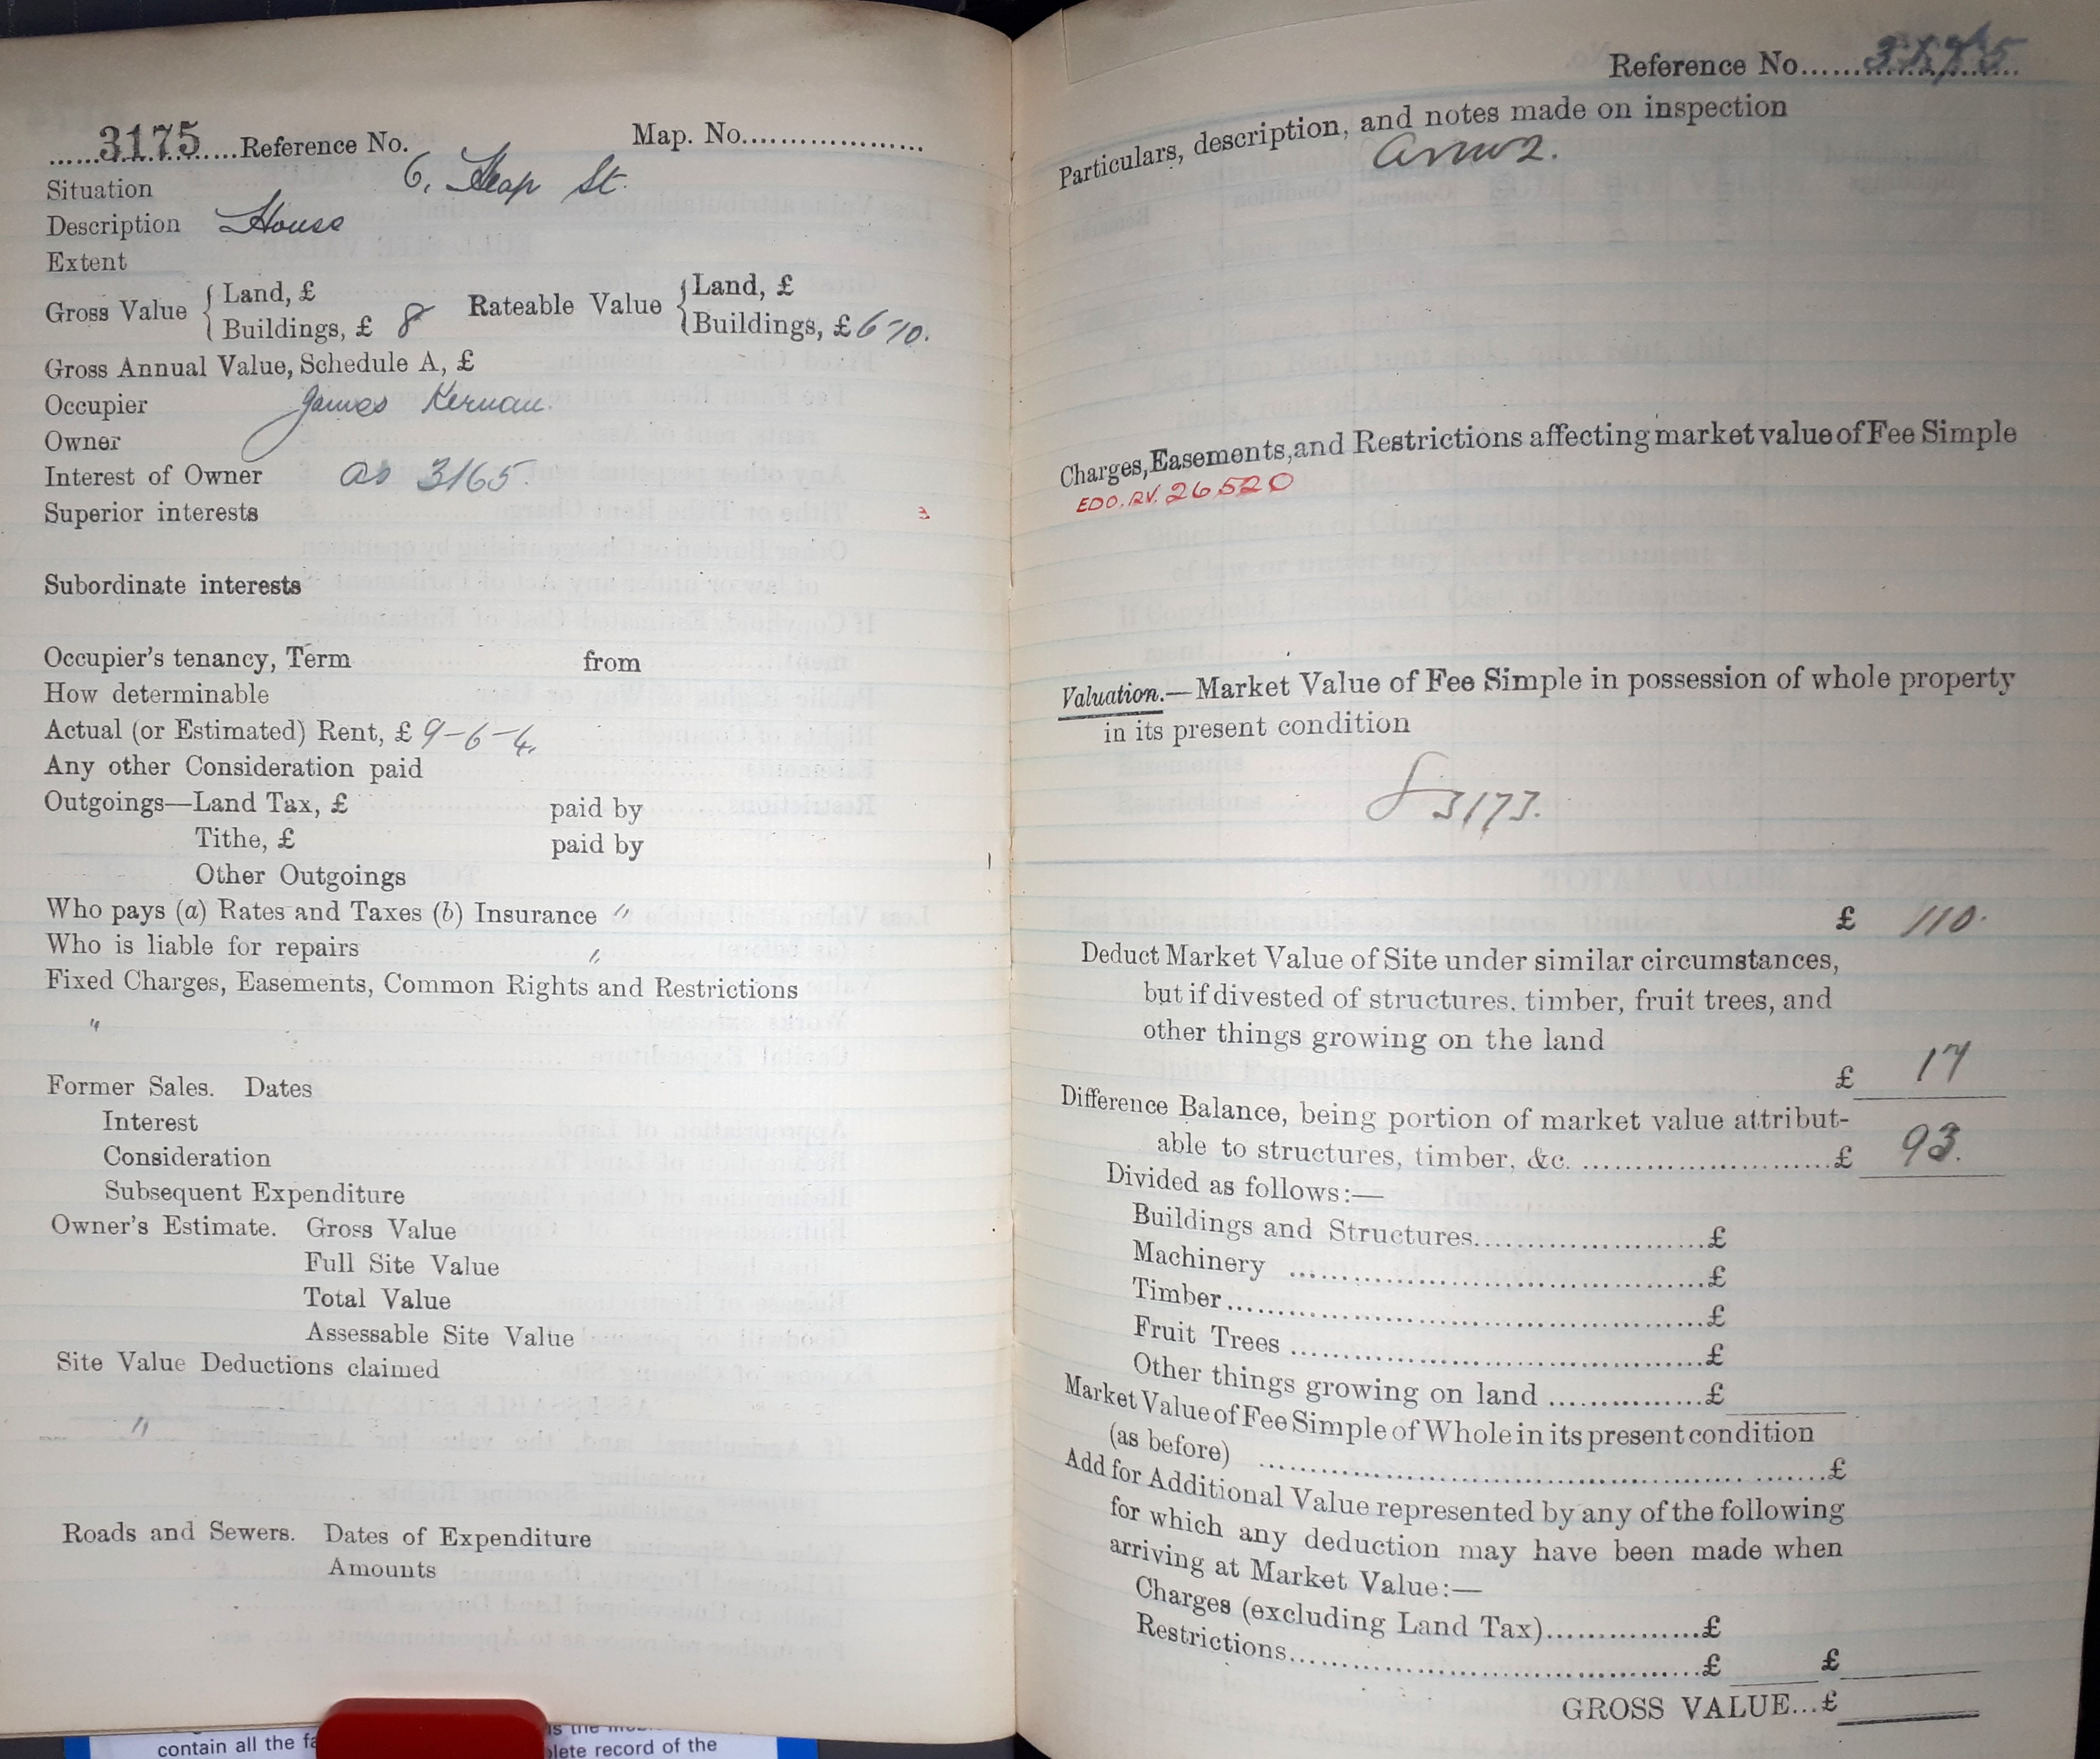 3175 Reference No. Map. No.....................
Situation 6, Heap St.
Description House
Extent
Gross Value { Land, £ Rateable Value { Land, £
Buildings, £ 8 Buildings, £ 6-10.
Gross Annual Value, Schedule A, £
Occupier James Kernan.
Owner
Interest of Owner as 3165.
Superior interests
Subordinate interests
Occupier's tenancy, Term from
How determinable
Actual (or Estimated) Rent, £ 9-6-4.
Any other Consideration paid
Outgoings—Land Tax, £ paid by
Tithe, £ paid by
Other Outgoings
Who pays (a) Rates and Taxes (b) Insurance "
Who is liable for repairs "
Fixed Charges, Easements, Common Rights and Restrictions
"
Former Sales. Dates
Interest
Consideration
Subsequent Expenditure
Owner's Estimate. Gross Value
Full Site Value
Total Value
Assessable Site Value
Site Value Deductions claimed
"
Roads and Sewers. Dates of Expenditure
Amounts
contain all the
plete record of the
Reference No.....................
Particulars, description, and notes made on inspection
Charges, Easements, and Restrictions affecting market value of Fee Simple
EDO. RV. 26520
Valuation.—Market Value of Fee Simple in possession of whole property
in its present condition
3173.
£ 110.
Deduct Market Value of Site under similar circumstances,
but if divested of structures, timber, fruit trees, and
other things growing on the land
£ 17
Difference Balance, being portion of market value attribut-
able to structures, timber, &c. .........................£ 93.
Divided as follows:—
Buildings and Structures.......................£
Machinery .........................................£
Timber................................................£
Fruit Trees .........................................£
Other things growing on land ................£
Market Value of Fee Simple of Whole in its present condition
(as before) .........................................................£
Add for Additional Value represented by any of the following
for which any deduction may have been made when
arriving at Market Value:—
Charges (excluding Land Tax)................£
Restrictions.........................................£ £
GROSS VALUE...£